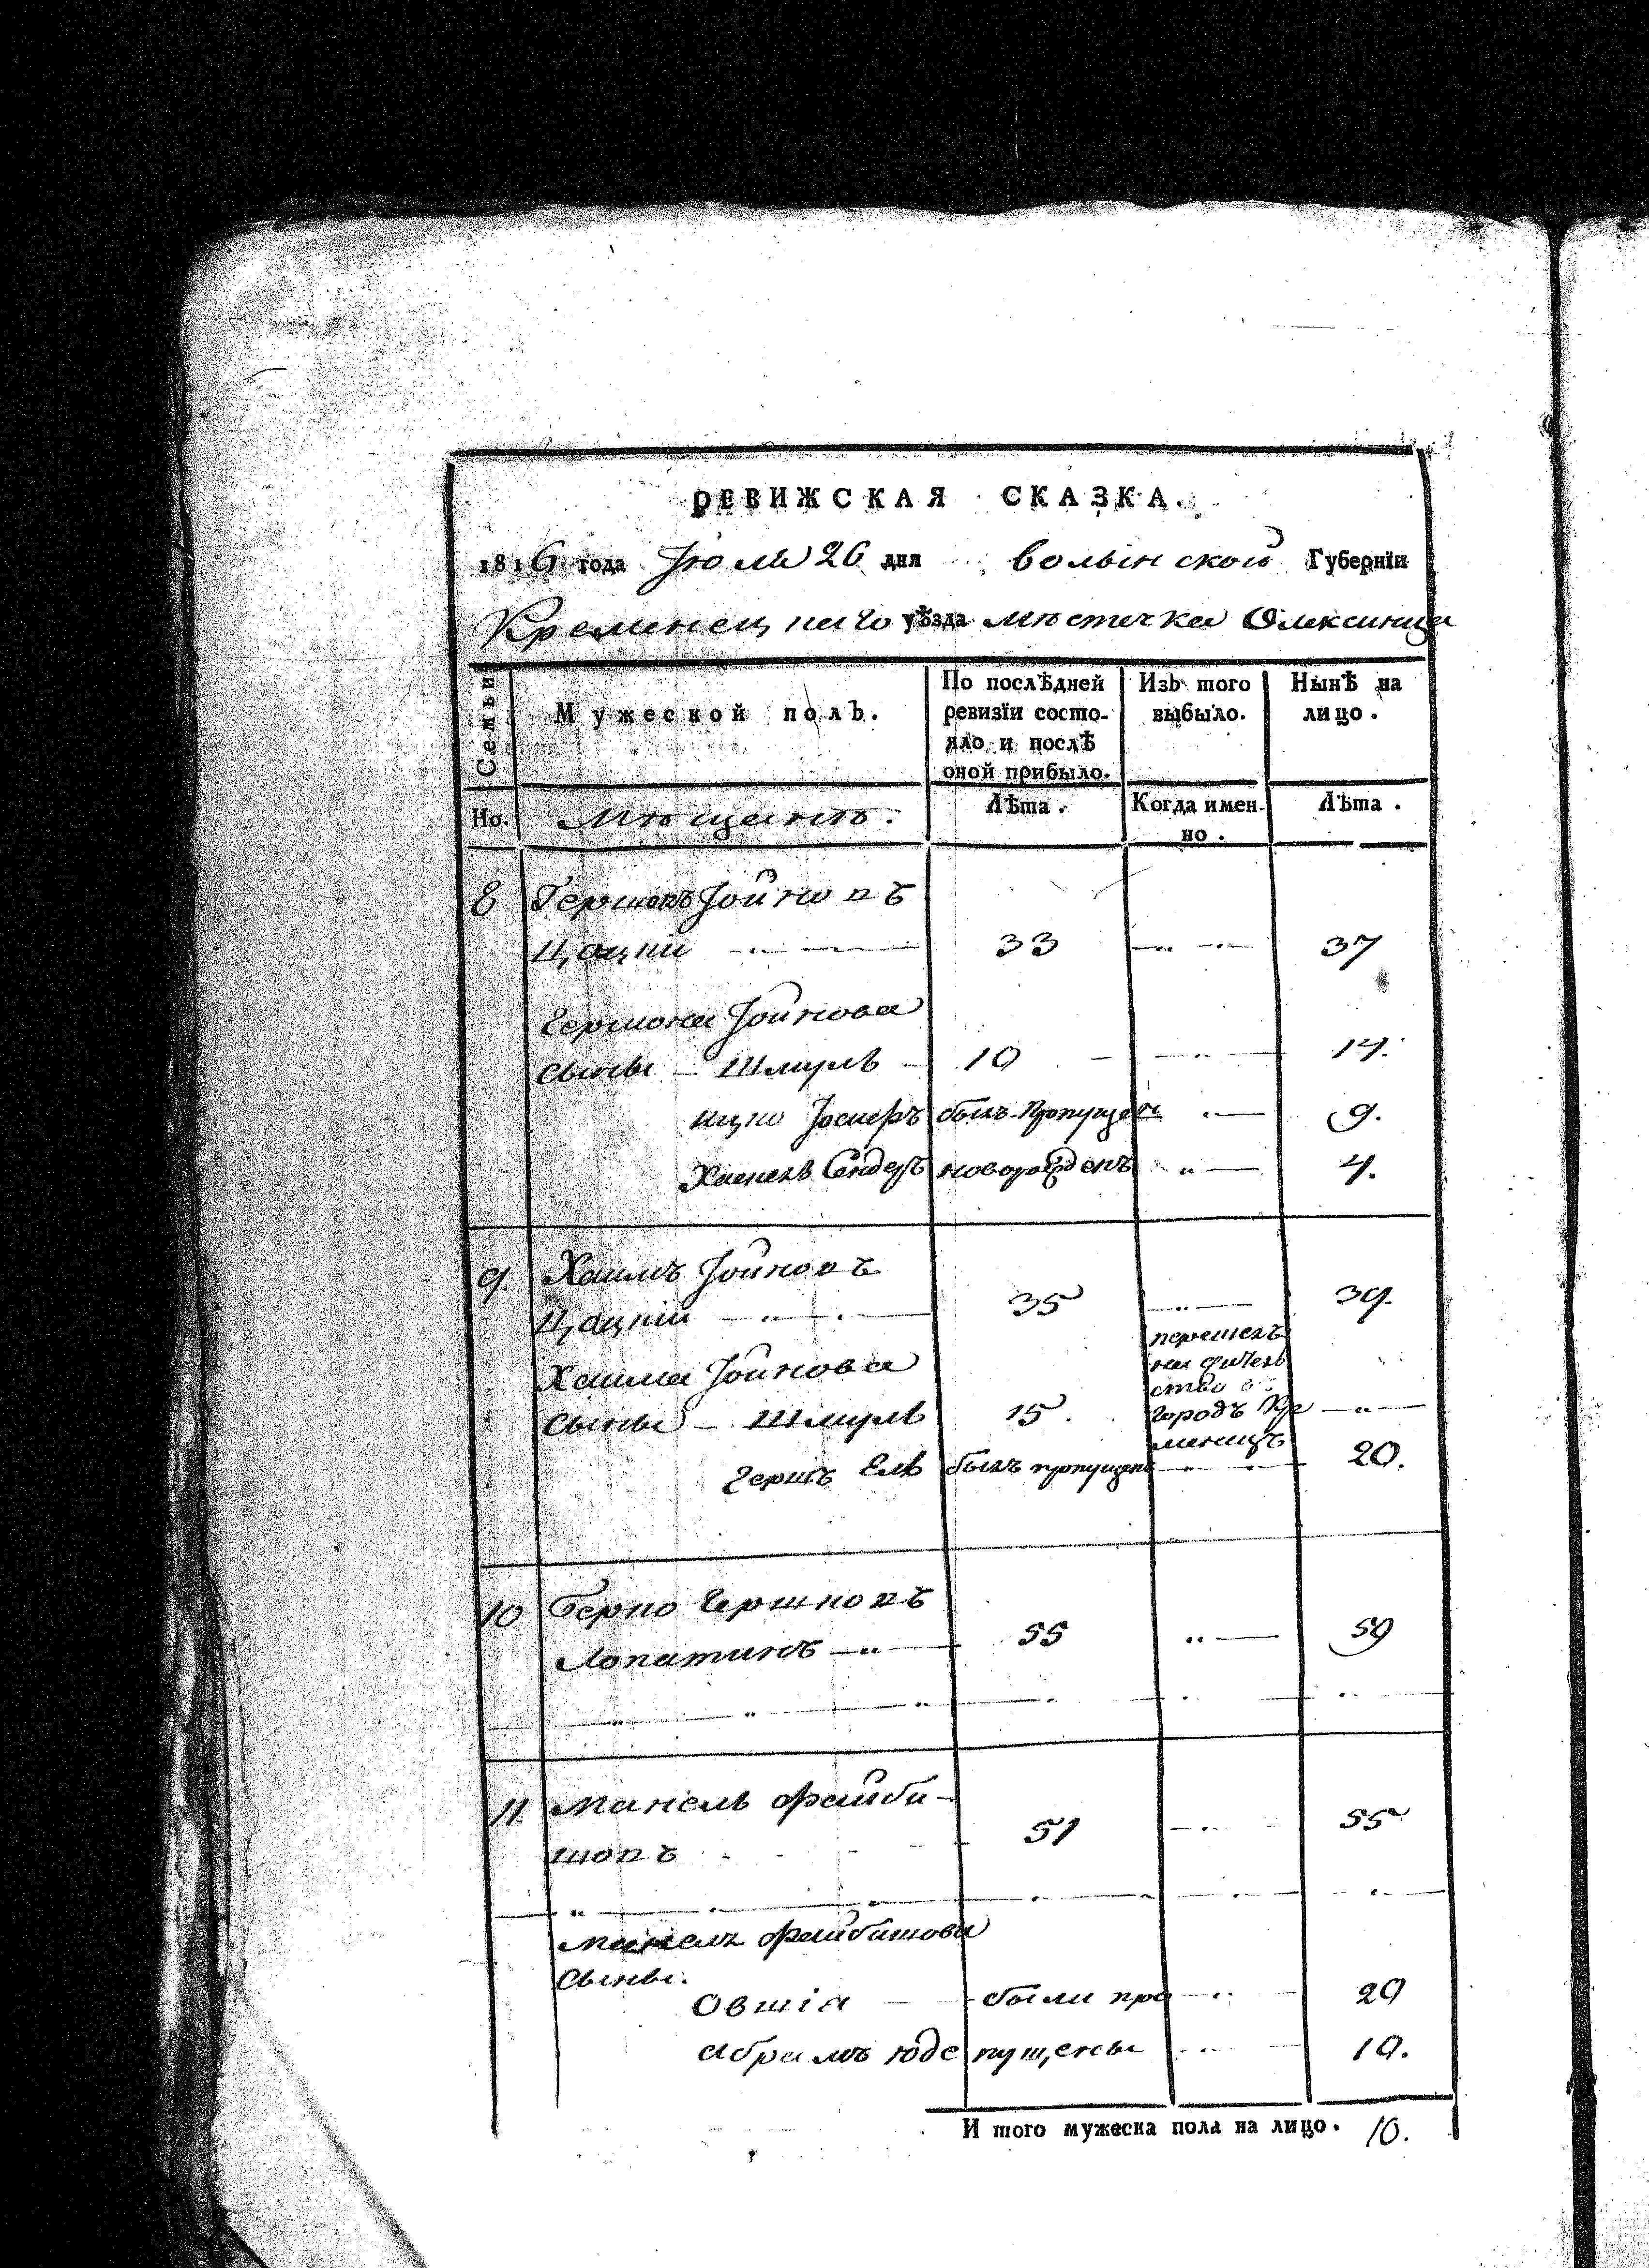 РЕВИЖСКАЯ СКАЗКА.
1816 года Іюля 26 дня волынской Губернїи
Кременецкаго уѣзда мѣстечка Олексинца
Семьи
Мужеской полъ.
По послѣдней ревизїи состо-
яло и послѣ
оной прибыло.
Изъ того
выбыло.
Нынѣ на
лицо.
Но.
Мѣщанъ.
Лѣта.
Когда имен-
но.
Лѣта.
8 Гершонъ Іойновъ
Цацкій 33 37
Гершона Іойнова
сыны Шмуль 10 14.
Ицко Іосиеръ былъ пропущен 9.
Хаскель Сендеръ новорожденъ 4.
9. Хаимъ Іойновъ
Цацкій 35 39.
Хаима Іойнова
перешелъ
на жител
ство в
сыны Шмуль 15. городъ Кре
менецъ
Гершъ Ель былъ пропущенъ 20.
10 Берко Гершковъ
Лопатинъ 55 59
11. Манель Файби-
шовъ 51 55
Манеля Файбишова
сыны.
Овшія были про 29
Абрамъ Юде пущены 19.
И того мужеска пола на лицо. 10.